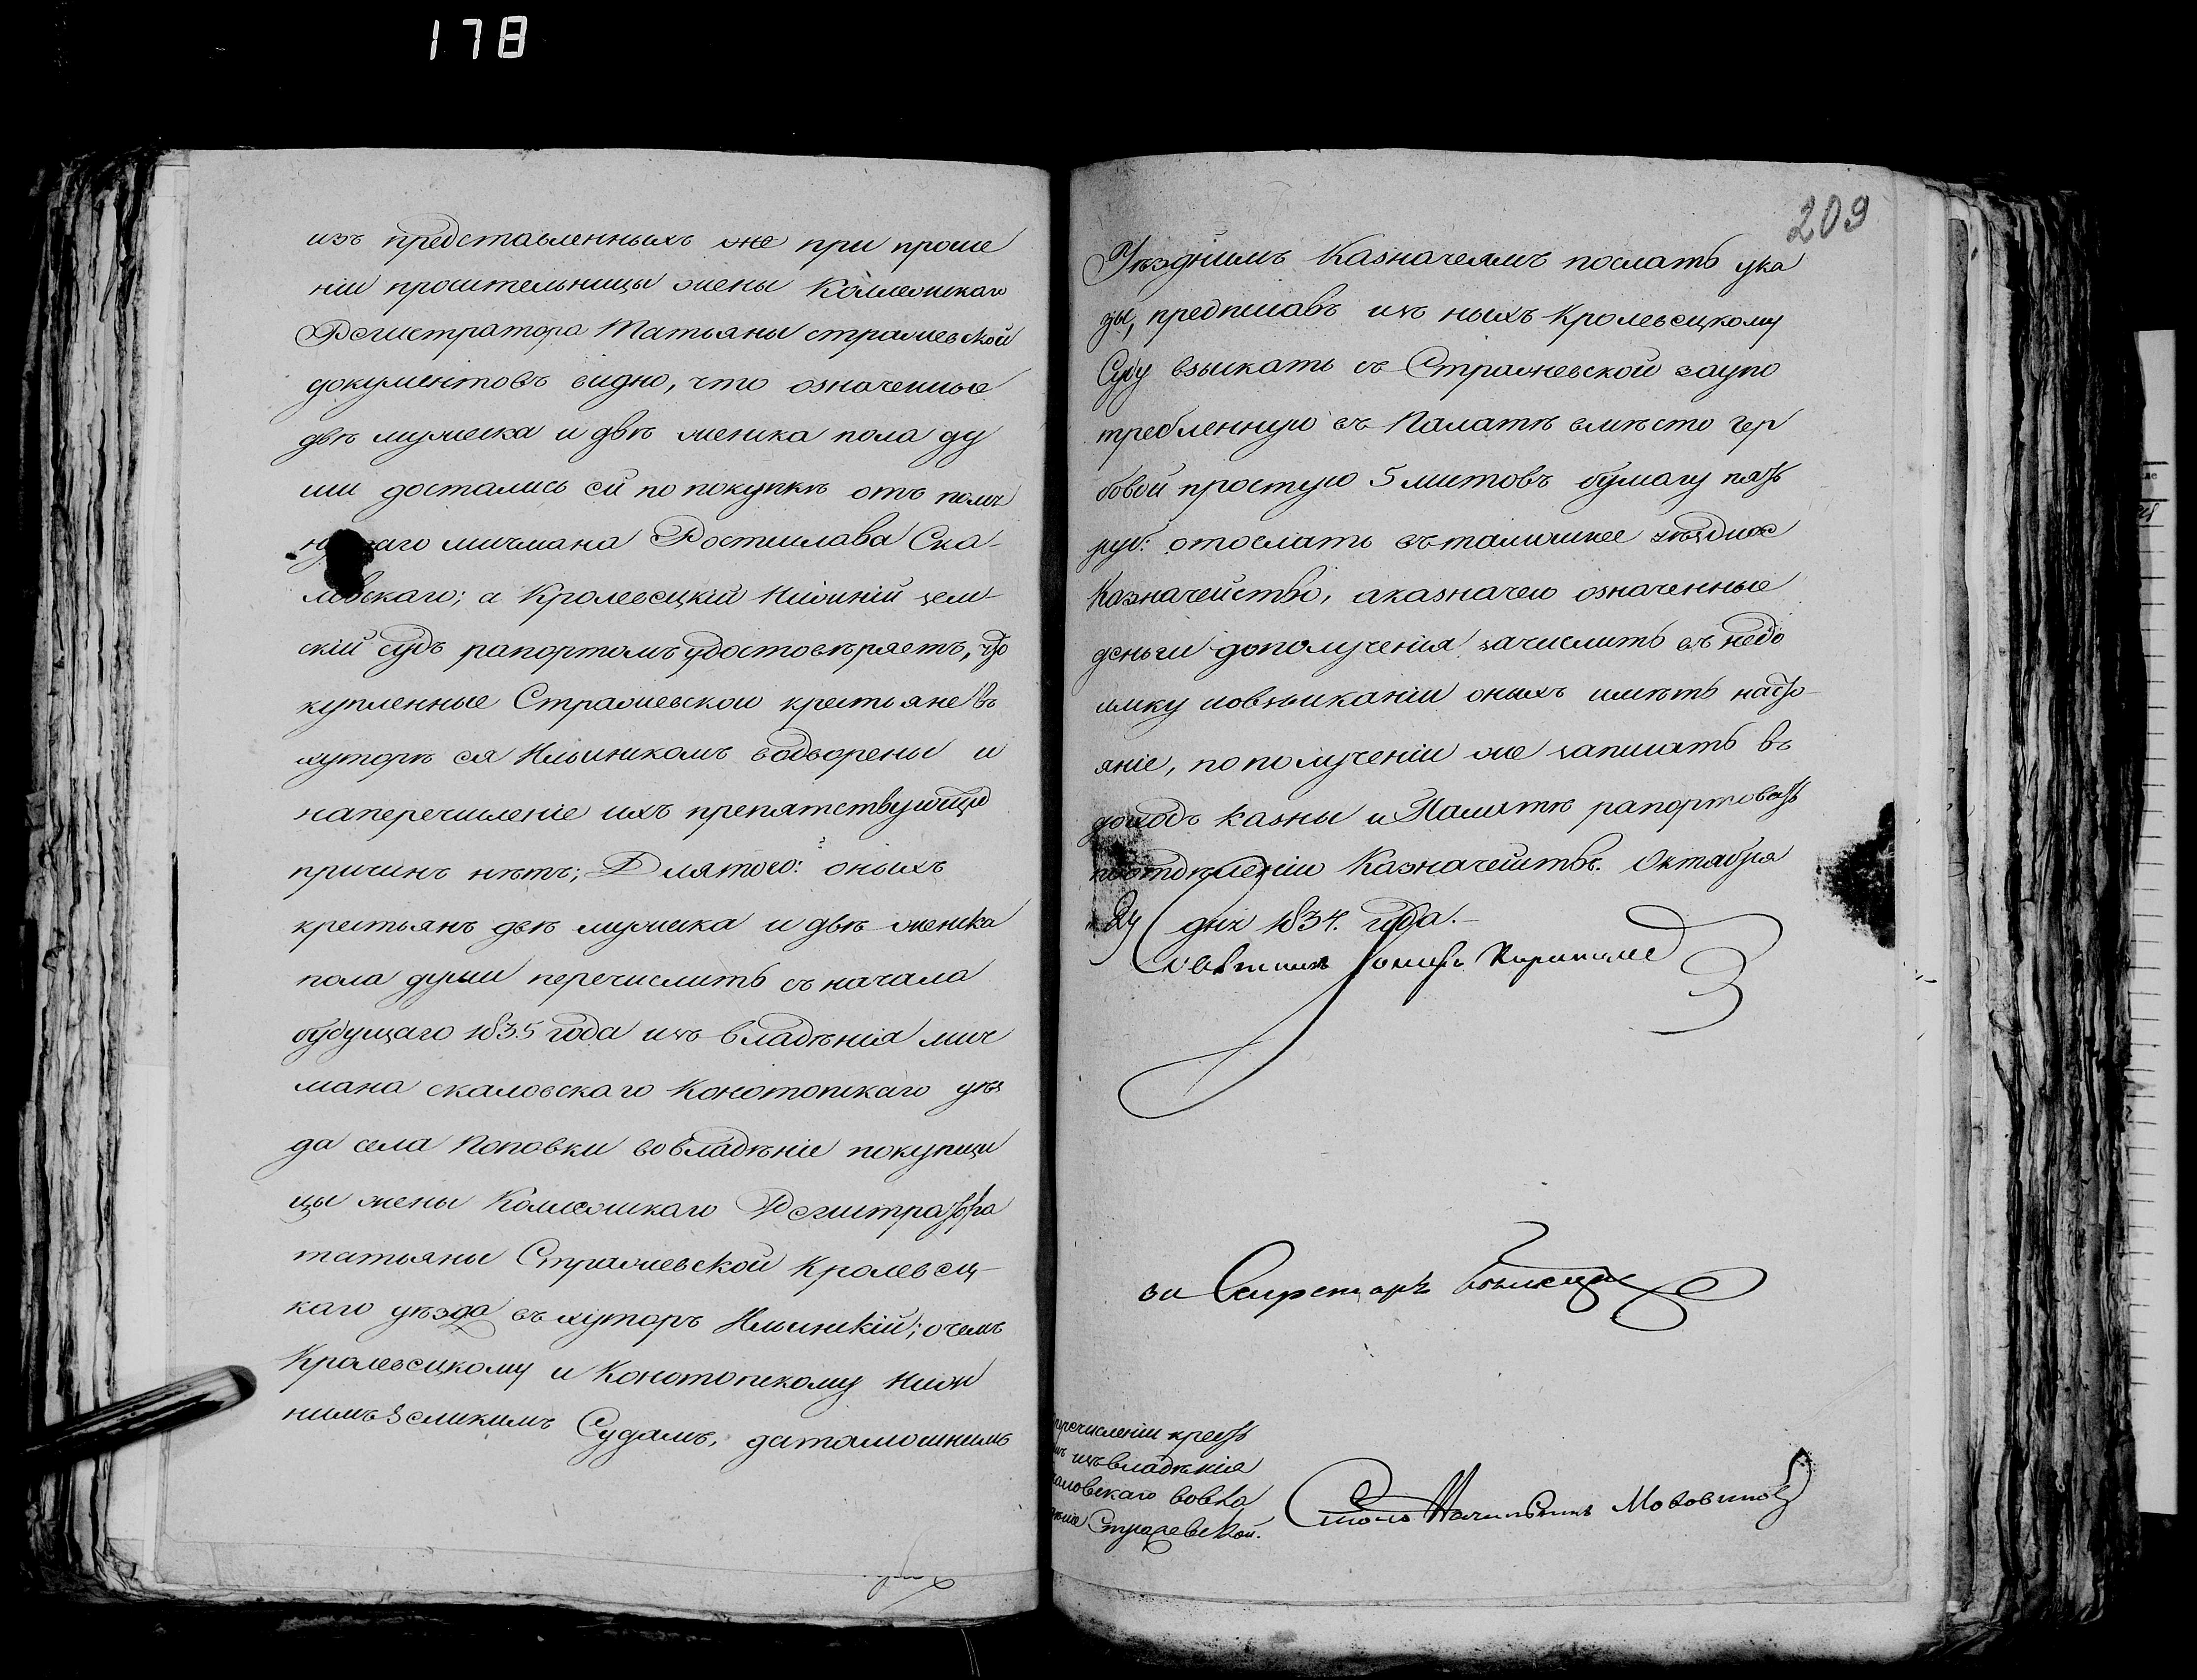 178
изъ представленныхъ же при проше
ніи просительницы жены Коллежскаго
Регистратора Татьяны Стражевской
документовъ видно, что означенные
двѣ мужеска и двѣ женска пола ду
ши достались ей по покупкѣ отъ помѣ
аго мичмана Ростислава Ска-
ловскаго; а Кролевецкій Нижній зем
скій судъ рапортомъ удостовѣряетъ, что
купленные Стражевскою крестьяне въ
хуторѣ ея Ильинскомъ водворены и
наперечисленіе ихъ препятствующихъ
причинъ нѣтъ; Для того: оныхъ
крестьянъ двѣ мужеска и двѣ женска
пола души перечислить съ начала
будущаго 1835 года изъ владѣнія мич
мана Скаловскаго Конотопскаго уѣз
да села Поповки во владѣніе покупщи
цы жены Коллежскаго Регистратора
Татьяны Стражевской Кролевец-
каго уѣзда въ хуторъ Ильинскій; о чемъ
Кролевецкому и Конотопскому Ниж
нимъ Земскимъ Судамъ, да тамошнимъ
209
Уѣзднимъ Казначеямъ послать ука
зы, предписавъ изъ ныхъ Кролевецкому
Суду взыскать съ Стражевской заупо
требленную въ Палатѣ вмѣсто гер
бовой простую 5 листовъ бумагу пять
руб: отослать въ тамишнее уѣздное
Казначейство, а казначею означенные
деньги до полученія зачислить въ недо
имку и о взысканіи оныхъ имѣть насто-
яніе, по полученіи же записать въ
доходъ казны и Палатѣ рапортовать
по отдѣленію Казначействъ. Октября
24 дня 1834. года.
Совѣтникъ
за Секретаря
перечисленіи кресть
изъ владѣнія
каловскаго во вла
деніе Стражевской.
Столо Начальникъ